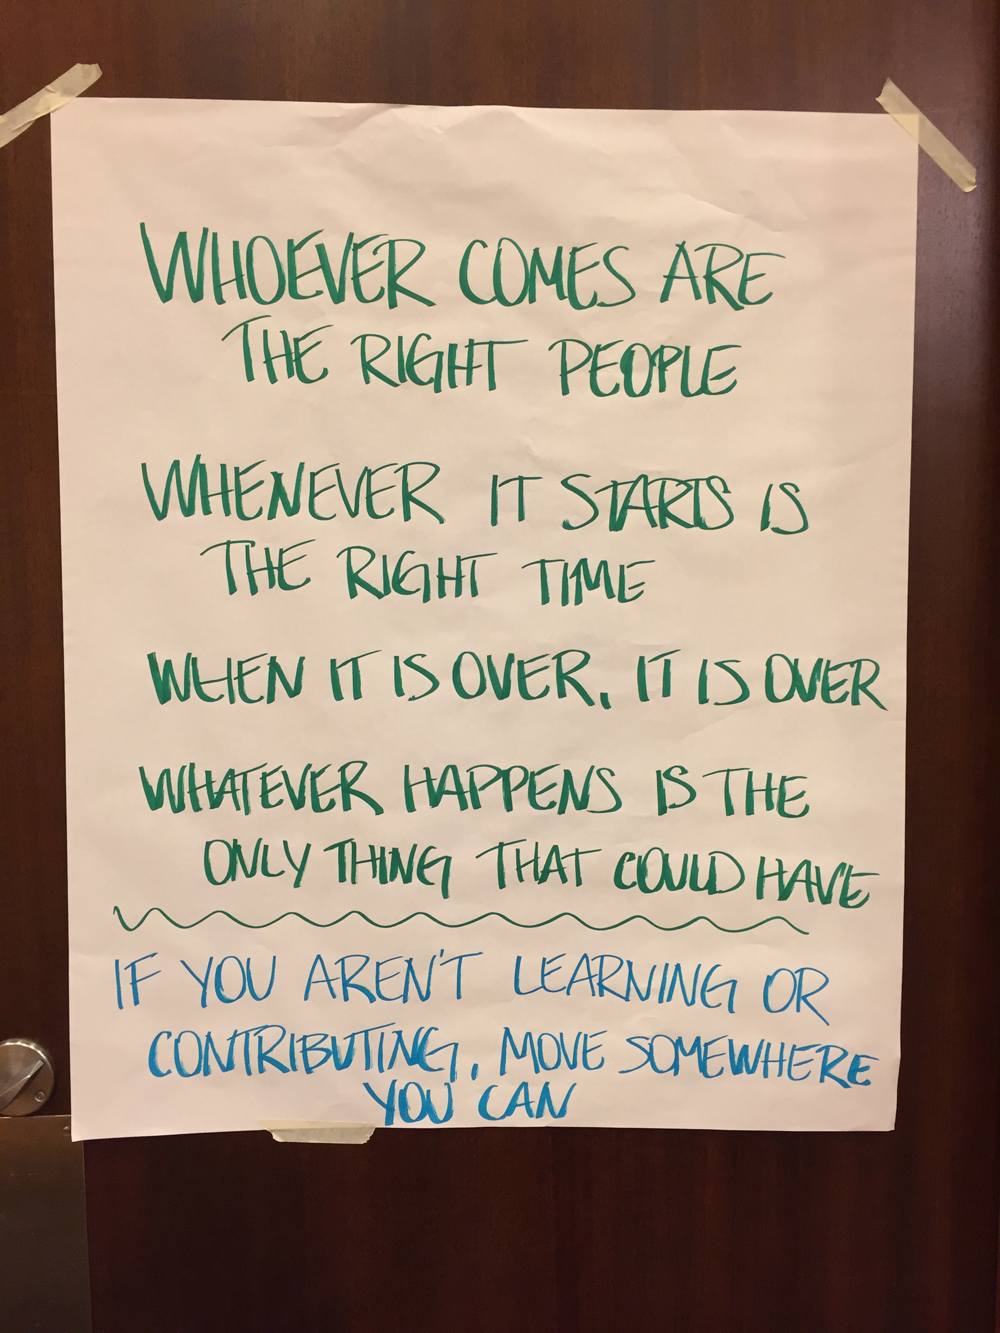 WHOEVER COMES ARE
THE RIGHT PEOPLE
WHENEVER IT STARTS IS
THE RIGHT TIME
WHEN IT IS OVER, IT IS OVER
WHATEVER HAPPENS IS THE
ONLY THING THAT COULD HAVE
IF YOU AREN'T LEARNING OR
CONTRIBUTING, MOVE SOMEWHERE
YOU CAN